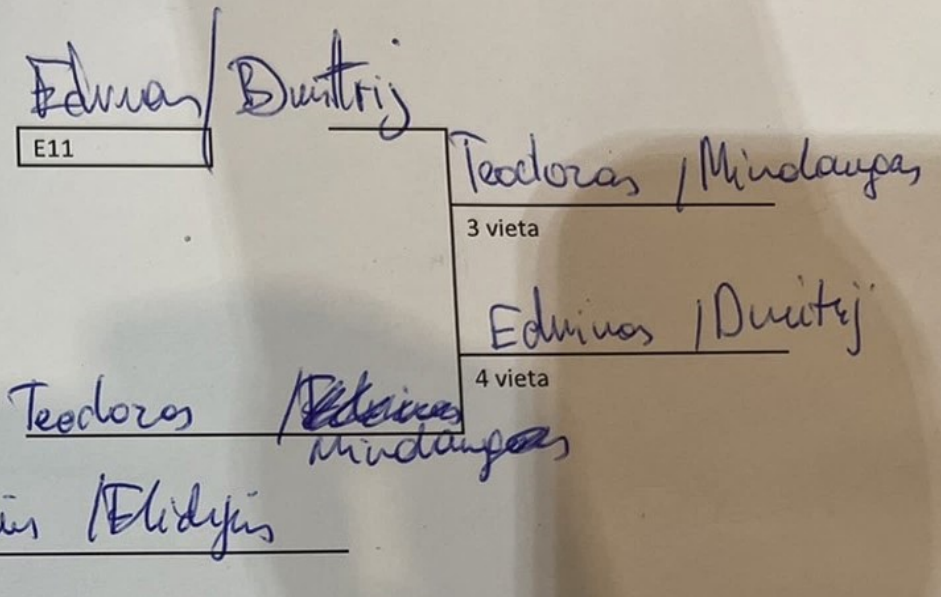 Edvinas / Dmitrij
E11
Teodoras / Mindaugas
3 vieta
Edvinas / Dmitrij
4 vieta
Teodoras /
Mindaugas
/ Elidijus